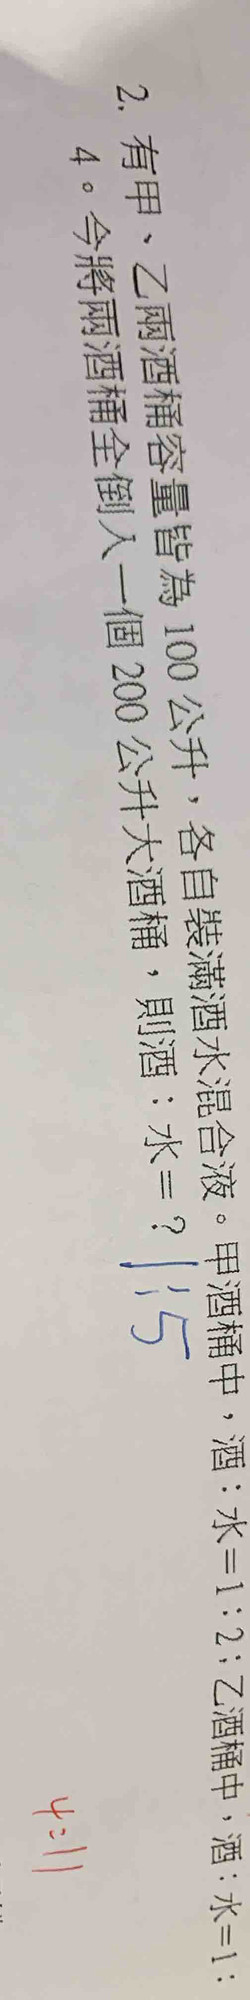 2. 有甲、乙兩酒桶容量皆為 100 公升，各自裝滿酒水混合液。甲酒桶中，酒：水=1：2；乙酒桶中，酒：水=1：
4。今將兩酒桶全倒入一個 200 公升大酒桶，則酒：水=？ 1:5
4:11